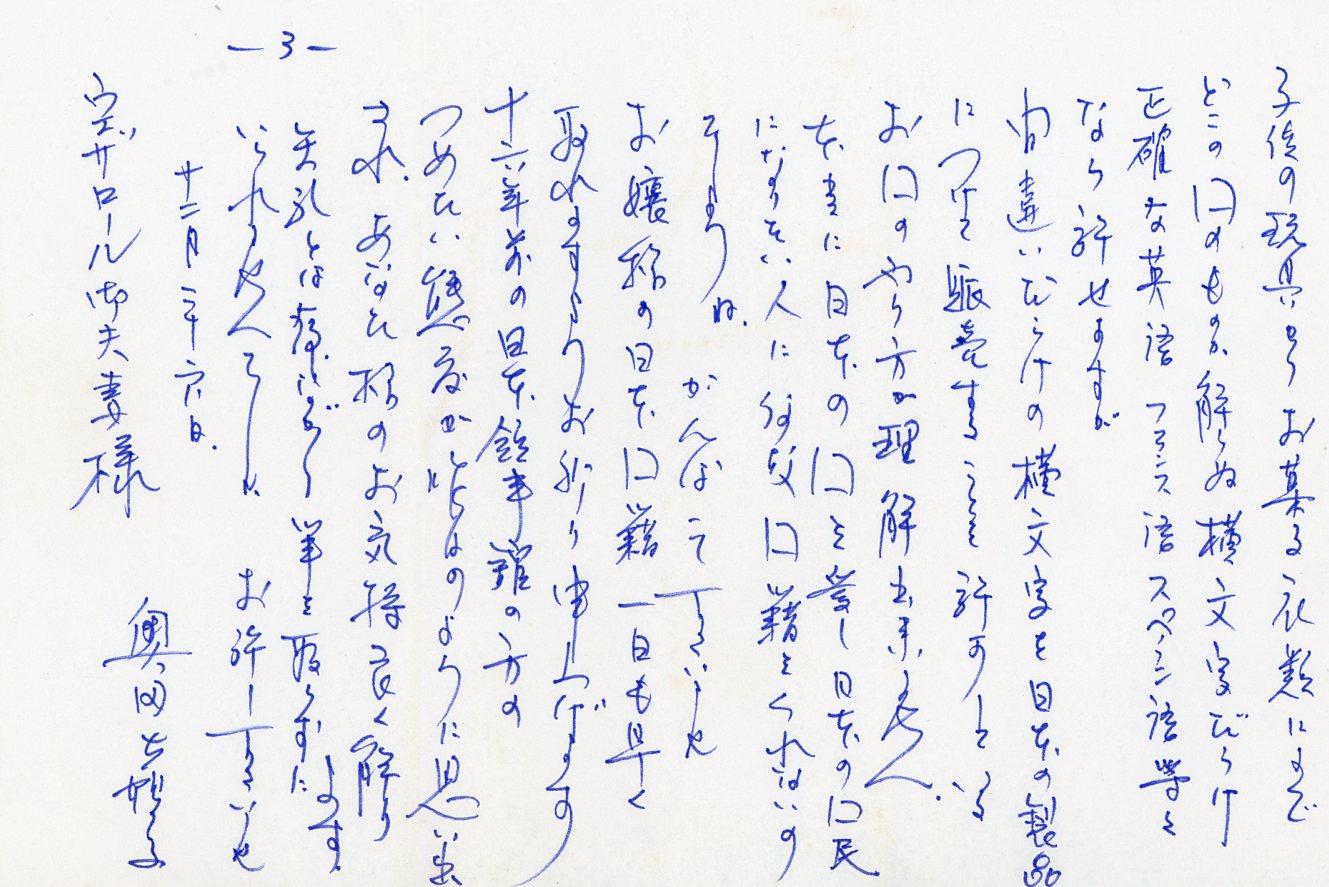 ―3―
子供の玩具から お菓子 衣類にまで
どこの国のものか解らぬ横文字だらけ
正確な英語 フランス語 スペイン語等と
なら許せますが
間違いだらけの横文字を日本の製品
につけて販売することを許可している
お国のやり方が理解出来ません。
本当に日本の国を愛し日本の国民
になりたい人に何故国籍をくれないの
でしょうね。 がんばって下さいませ
お嬢様の日本国籍 一日も早く
取れますようお祈り申し上げます
十六年前の日本領事館の方の
つめたい態度が昨日のように思い出
され、あなた様のお気持良く解ります
失礼とは存じながら筆を取らずに
いられませんでした お許し下さいませ
十二月二十六日。
ウェザロール御夫妻様
奥田